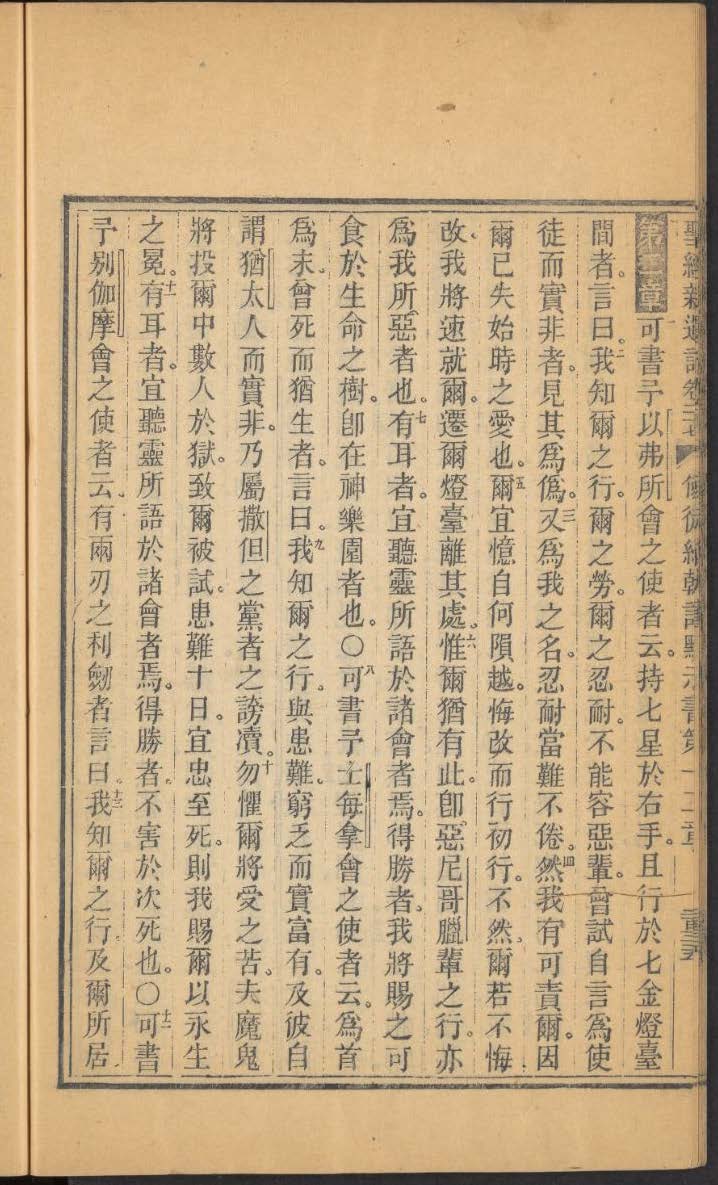 聖經新遺詔 使徒 示書第一二章
第二章一可書予以弗所會之使者云。持七星於右手。且行於七金燈臺
間者。言曰。二我知爾之行。爾之勞。爾之忍耐。不能容惡輩。曾試自言爲使
徒而實非者。見其爲僞。三又爲我之名。忍耐當難不倦。四然我有可責爾。因
爾已失始時之愛也。五爾宜憶自何隕越。悔改而行初行。不然。爾若不悔
改。我將速就爾。遷爾燈臺離其處。六惟爾猶有此。卽惡尼哥臘輩之行。亦
爲我所惡者也。七有耳者。宜聽靈所語於諸會者焉。得勝者。我將賜之可
食於生命之樹。卽在神樂園者也。〇八可書予士每拿會之使者云。爲首
爲末。曾死而猶生者。言曰。九我知爾之行。與患難。窮乏而實富有。及彼自
謂猶太人而實非。乃屬撒但之黨者之謗瀆。十勿懼爾將受之苦。夫魔鬼
將投爾中數人於獄。致爾被試。患難十日。宜忠至死。則我賜爾以永生
之冕。十一有耳者。宜聽靈所語於諸會者焉。得勝者。不害於次死也。〇十二可書
予別伽摩會之使者云。有兩刃之利劒者言曰。十三我知爾之行。及爾所居